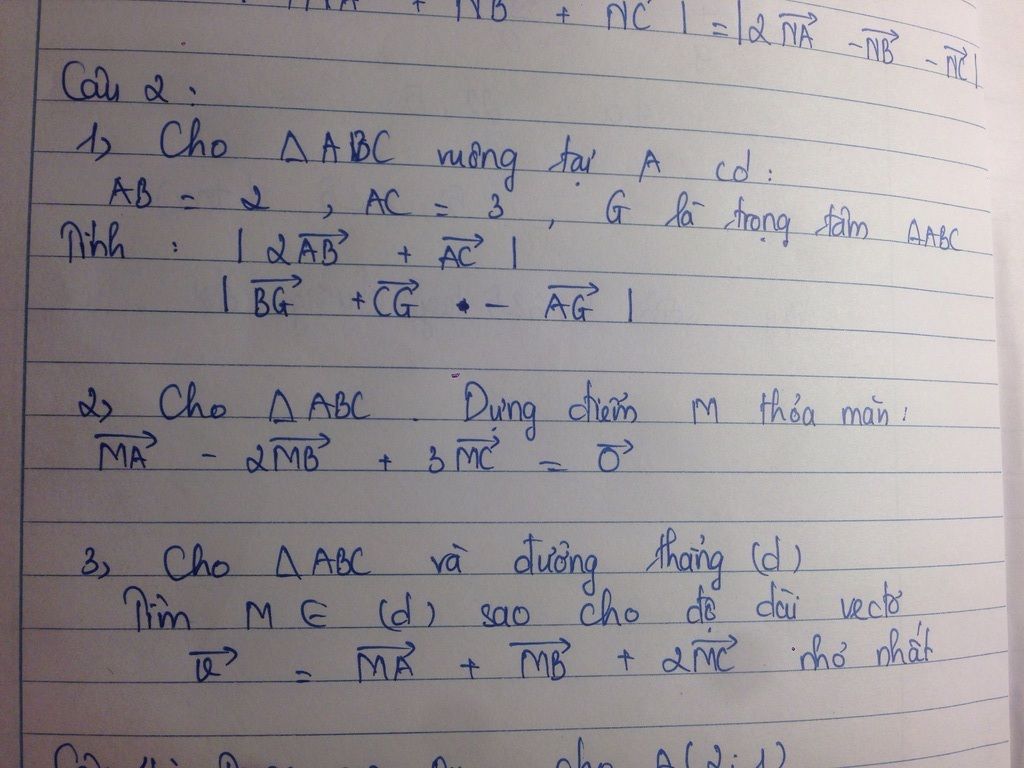 + NB + NC | = | 2NA - NB - NC |
Câu 2 :
1, Cho ΔABC vuông tại A có :
AB = 2 , AC = 3 , G là trọng tâm ΔABC
Tính : | 2AB + AC |
| BG + CG - AG |
2, Cho ΔABC . Dựng điểm M thỏa mãn :
MA - 2MB + 3MC = 0
3, Cho ΔABC và đường thẳng (d)
Tìm M ∈ (d) sao cho độ dài vectơ
= MA + MB + 2MC nhỏ nhất
cho A(2; 1)